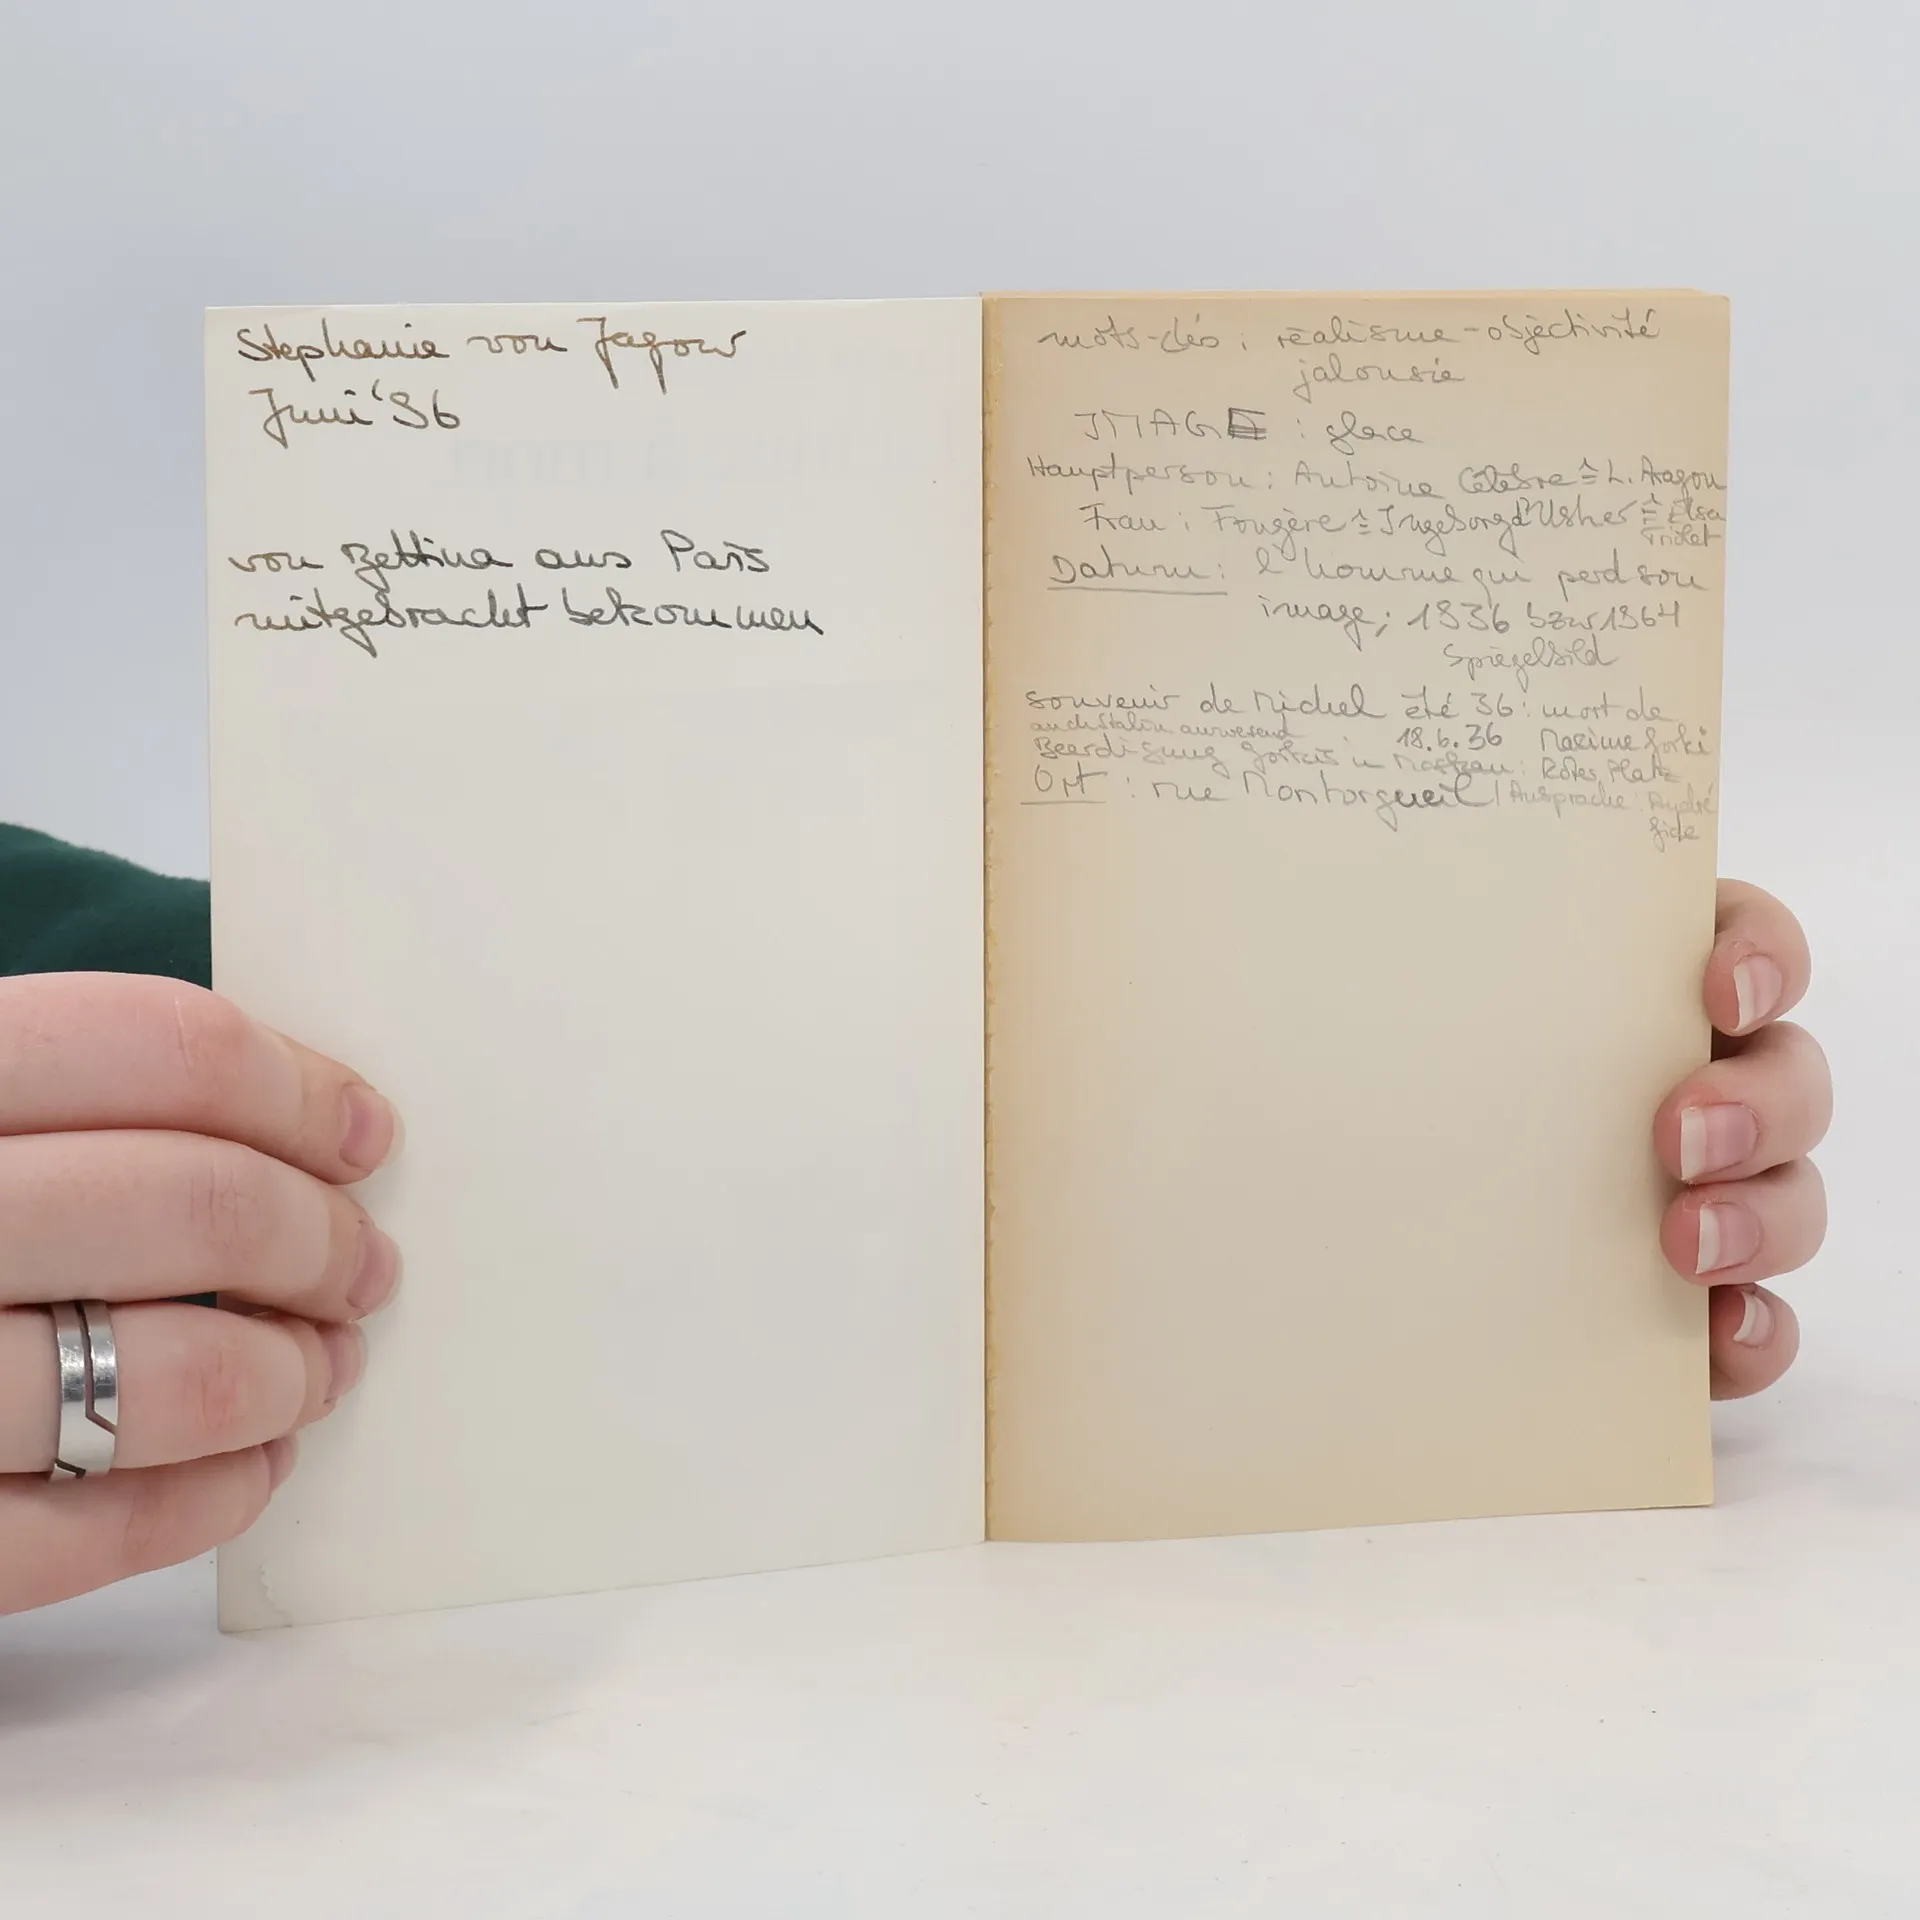 Stephanie von Jagow
Juni '96
von Bettina aus Paris
mitgebracht bekommen
mots-clés : réalisme - objectivité
jalousie
IMAGE : glace
Hauptperson : Antoine Célèbre ≙ L. Aragon
Frau : Fougère ≙ Ingeborg d'Usher ≙ Elsa
Triolet
Datum : l'homme qui perd son
image; 1936 bzw 1964
Spiegelbild
souvenir de Michel été 36 : mort de
auch Stalin anwesend 18.6.36 Maxime Gorki
Beerdigung Gorkis in Moskau : Roter Platz
Ort : rue Montorgueil / Ansprache : André
Gide